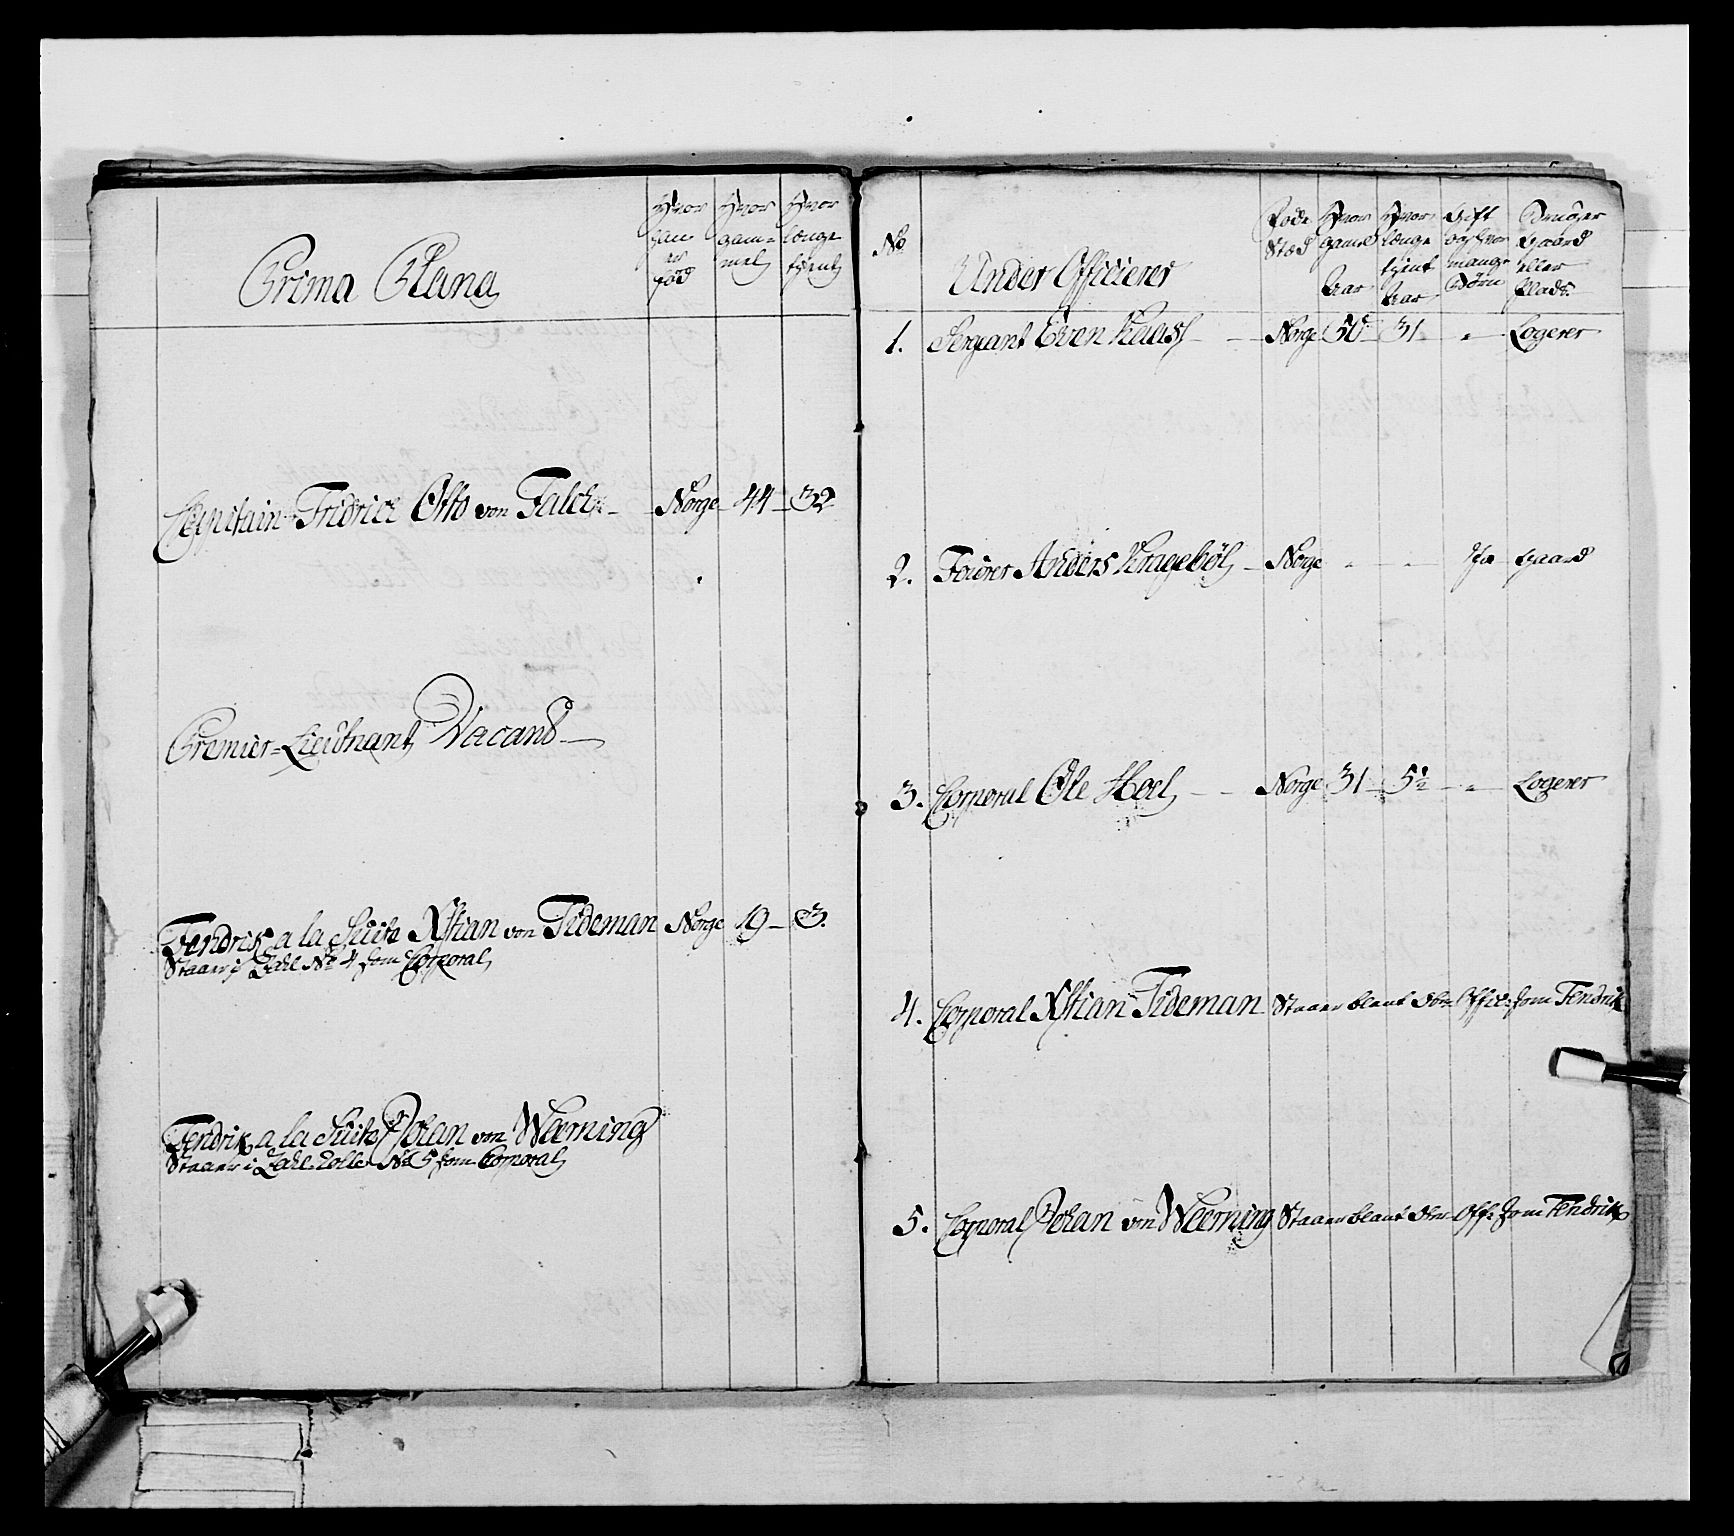 Prima Plana
Hvor han er fød
Hvor gam=mel
Hvor længe tient
Capitain Fridrich Otto von Falch Norge 44 32
Premier=Lieutnant Vacand
Fendrik a la Suite Xstian von Tideman Norge 19 3.
Staaer i No 4 som Corporal
Fendrik a la Suite Johan von Weerning
Staaer i Rolle No 5 som Corporal
No
Under Officierer
Føde Stæd
Hvor gaml Aar
Hvor længe tient Aar
Gift og hvor mange Børn
Bruger Gaard eller Plads
1. Sergiant Even Kaas Norge 50 31 " Logerer
2. Fourer Anders Kragebøl Norge " " Ja Gaard
3. Corporal Ole Hoel Norge 31 5½ " Logerer
4. Corporal Xstian Tideman Staaer blant Ober Offic: som Fendrik
5. Corporal Johan von Weerning Staaer blant Ober Off: som Fendrik